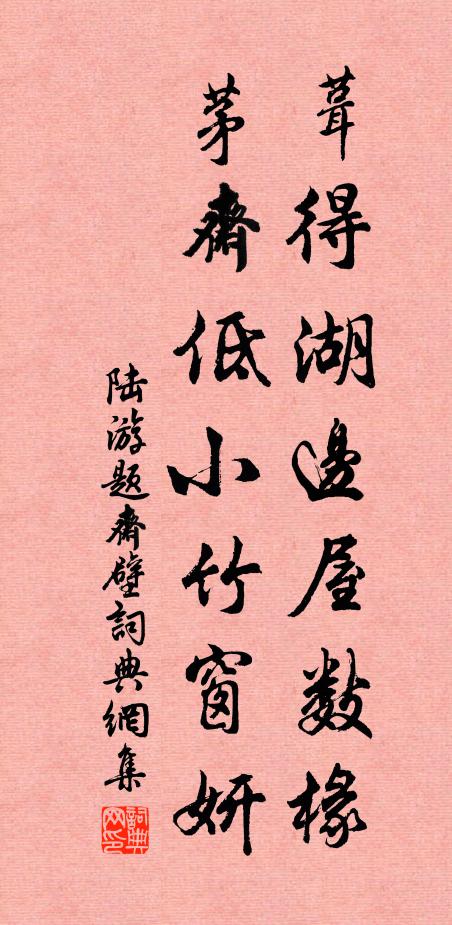 葺得湖邊屋数椽
茅齋低小竹窗妍
陆游题齋壁詞典網集
詞典网印